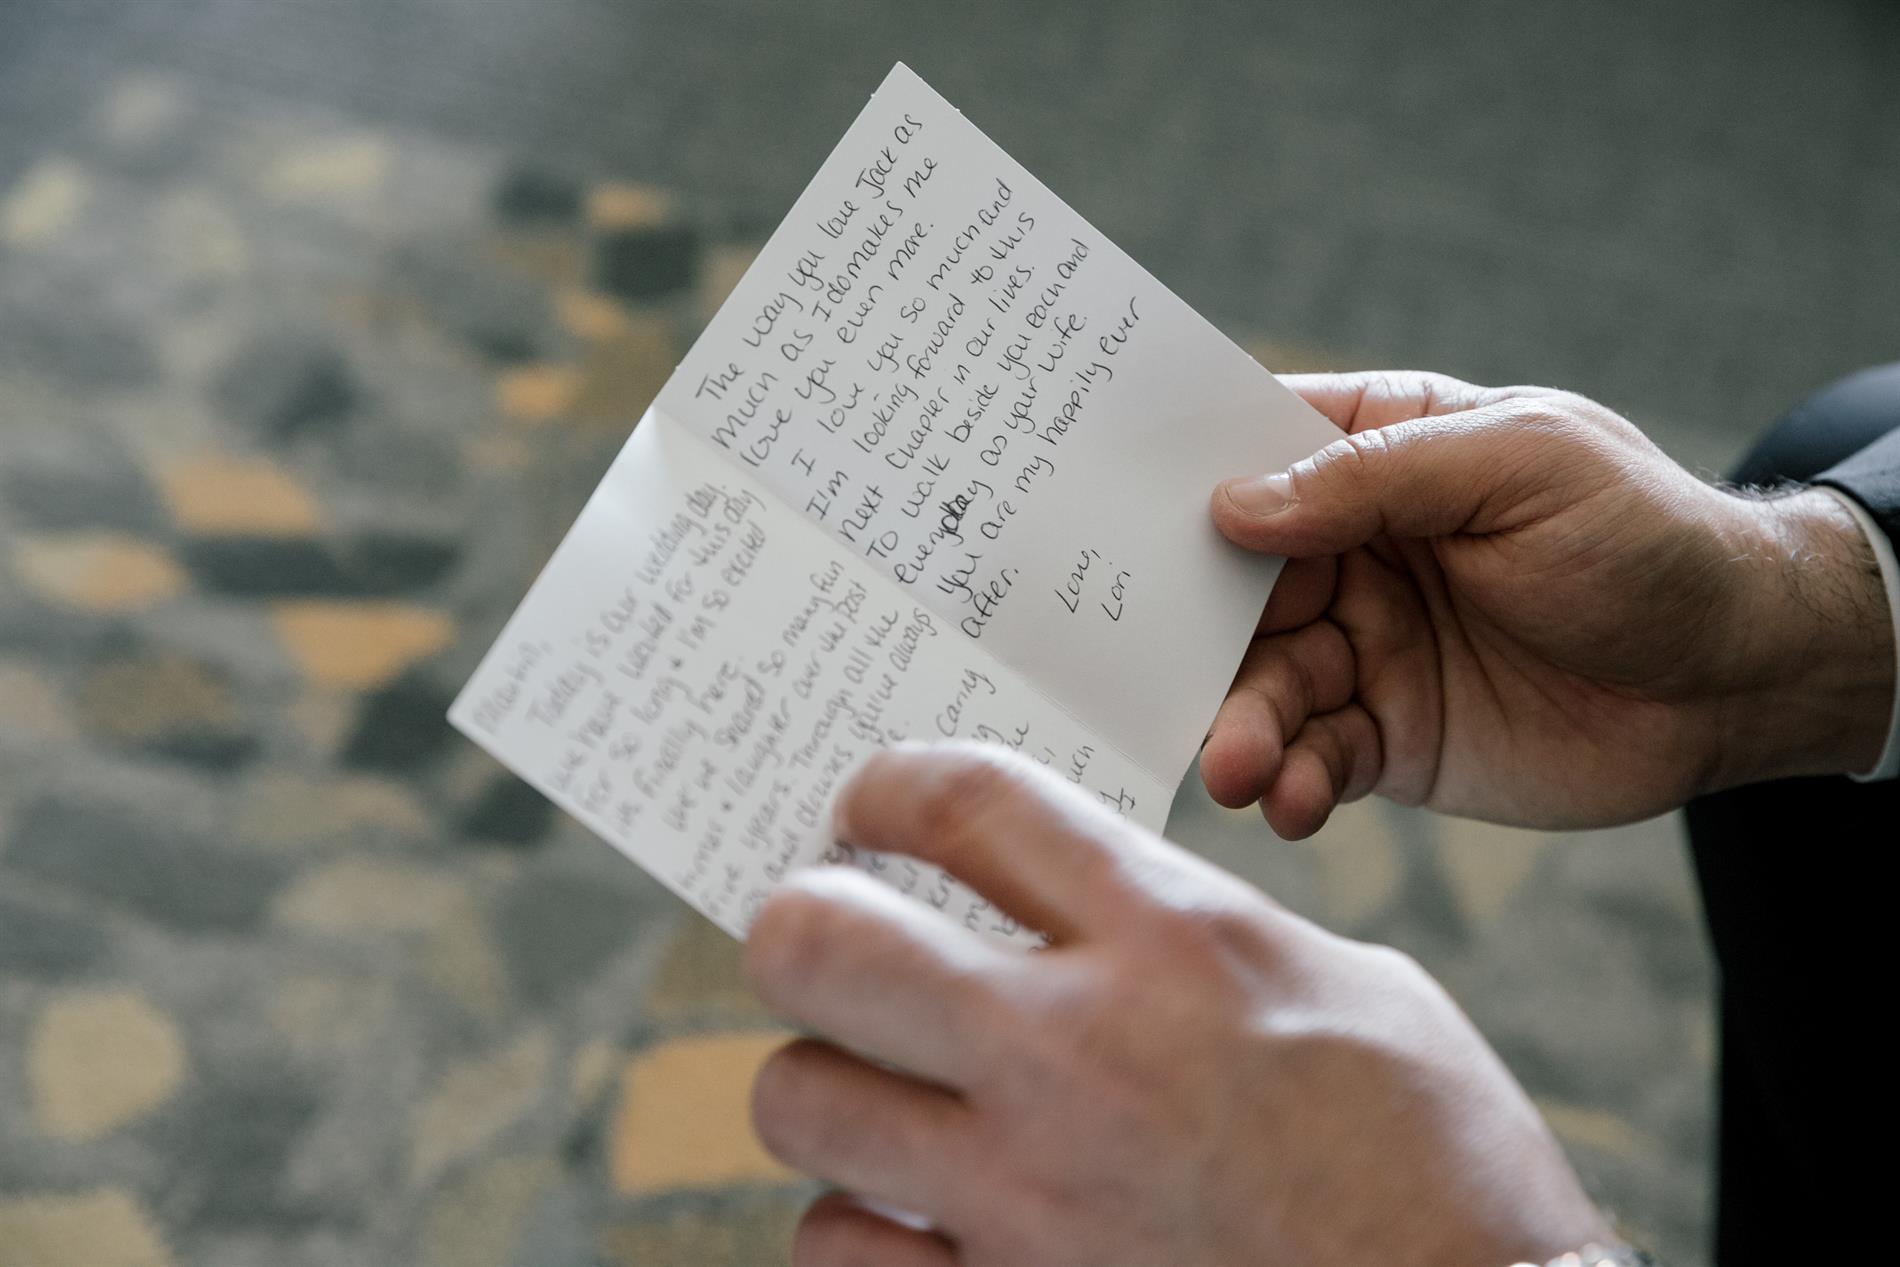 Martin,
Today is our wedding day.
We have waited for this day
for so long & I'm so excited
is finally here.
We've shared so many fun
times & laughter over the past
five years. Through all the
ups and downs you've always
carry
know
much
I
The way you love Jack as
much as I do makes me
love you even more.
I love you so much and
I'm looking forward to this
next chapter in our lives.
To walk beside you each and
everyday as your wife.
You are my happily ever
after.
Love,
Lori